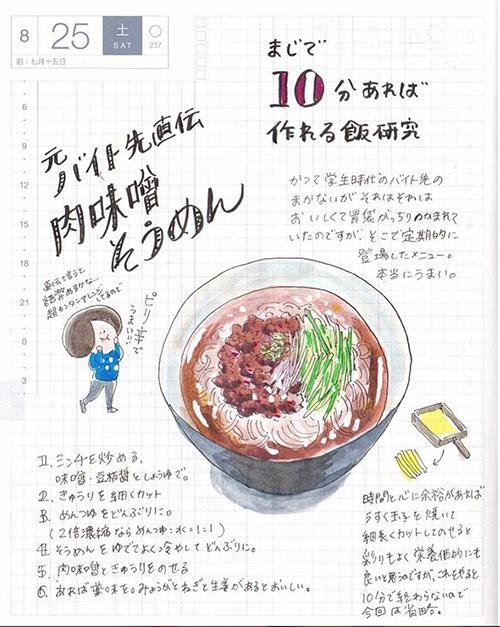 8
25
土
SAT
237
旧:七月十五日
まじで
10分あれば
作れる飯研究
元バイト先直伝
肉味噌
そうめん
かつて学生時代のバイト先の
まかないがそれはそれは
おいしくて胃袋がっちりつかまれて
いたのですが、そこで定期的に
登場したメニュー。
本当にうまい。
直伝と言うと
語弊あるかな…
超カンタンアレンジ
してるので
ピリ辛で
うまい!!
6
9
12
15
18
21
0
3
1. ミンチを炒める、
味噌・豆板醤としょうゆで。
2. きゅうりを細くカット
3. めんつゆをどんぶりに。
(2倍濃縮ならめんつゆ:水=1:1)
4. そうめんをゆでてよく冷やしてどんぶりに。
5. 肉味噌ときゅうりをのせる
6. あれば薬味を。みょうがとねぎと生姜があるとおいしい。
時間と心に余裕があれば
うすく玉子を焼いて
細長くカットしてのせると
彩りもよく栄養価的にも
良いと思うのですが、これをやると
10分で終わらないので
今回は省略。